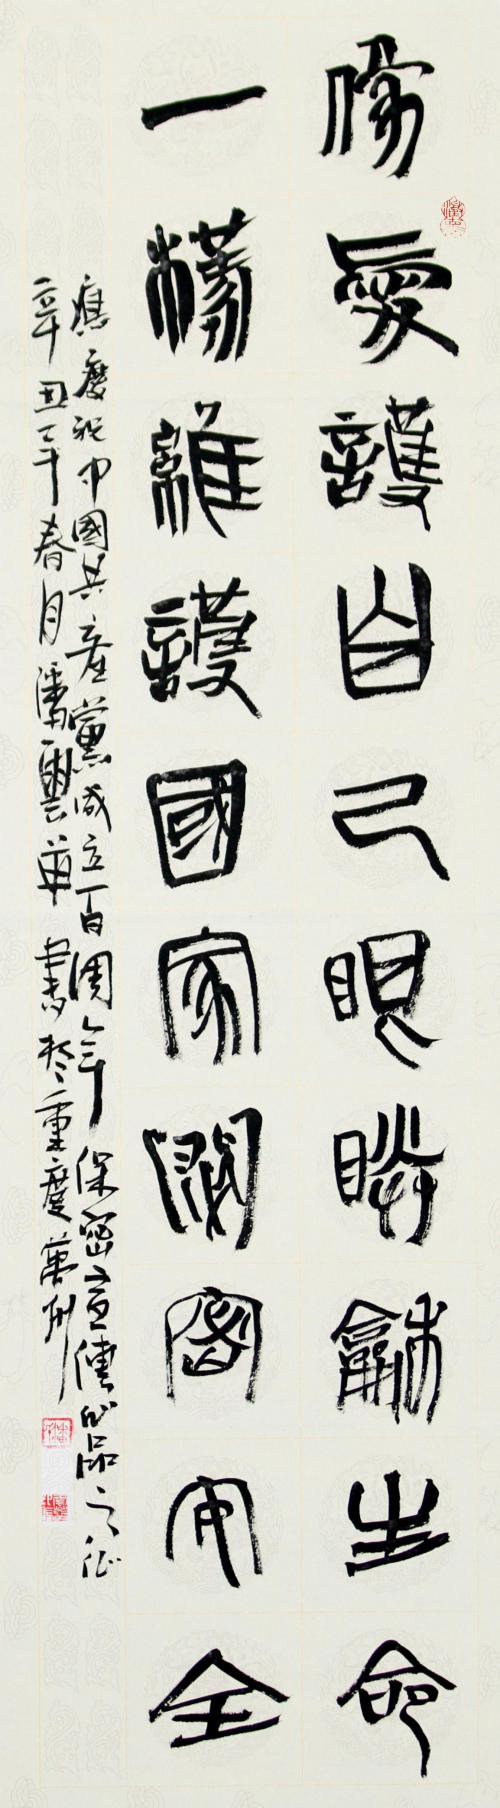 像愛護自己眼睛龢生命
一樣維護國家密安全
應慶祝中國共產黨成立百周年保密宣傳作品之征
辛丑年春月潘書於重慶萬州